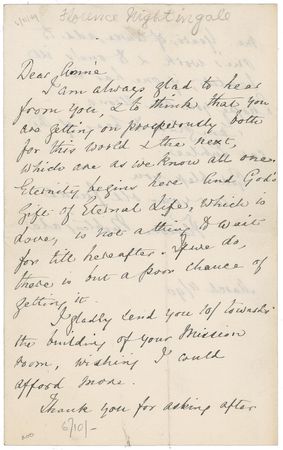 Florence Nightingale
Dear Annie
I am always glad to hear
from you, & to think that you
are getting on prosperously both
for this world & the next,
which are as we know all one.
Eternity begins here And God's
Gift of Eternal Life, which is
Love, is not a thing to wait
for till hereafter. If we do,
there is but a poor chance of
getting it.
I gladly send you 10/ towards
the building of your Mission
Room, wishing I could
afford more.
Thank you for asking after
6/10/-